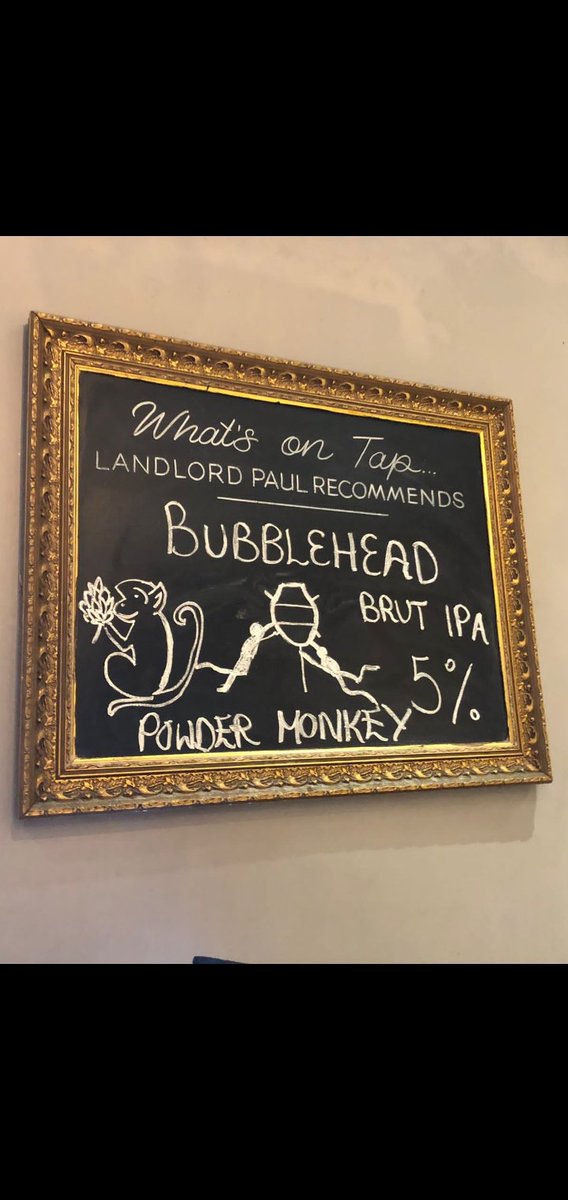 What's on Tap...
LANDLORD PAUL RECOMMENDS
BUBBLEHEAD
BRUT IPA
5%
POWDER MONKEY